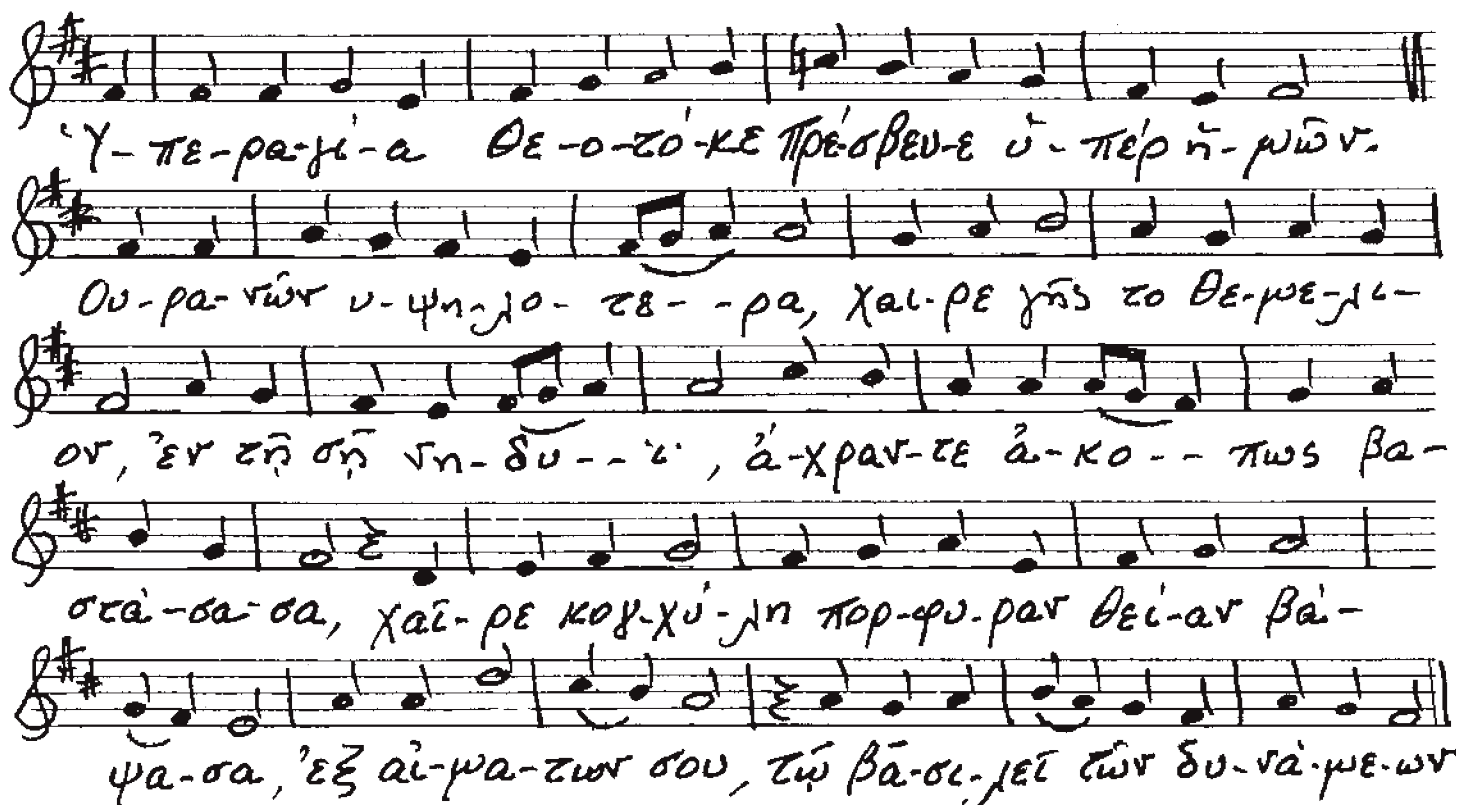 Ὑ-πε-ρα-γί-α Θε-ο-τό-κε πρέ-σβευ-ε ὑ-πέρ ἡ-μῶν.
Ου-ρα-νῶν υ-ψη-λο-τε--ρα, χαι-ρε γῆς το θε-με-λι-
ον, ἐν τῇ σῇ νη-δυ--ϊ, ἄ-χραν-τε ἀ-κο--πως βα-
στά-σα-σα, χαῖ-ρε κογ-χύ-λη πορ-φυ-ραν θεί-αν βά-
ψα-σα, ἐξ αἱ-μα-των σου, τῷ βα-σι-λεῖ τῶν δυ-νά-με-ων